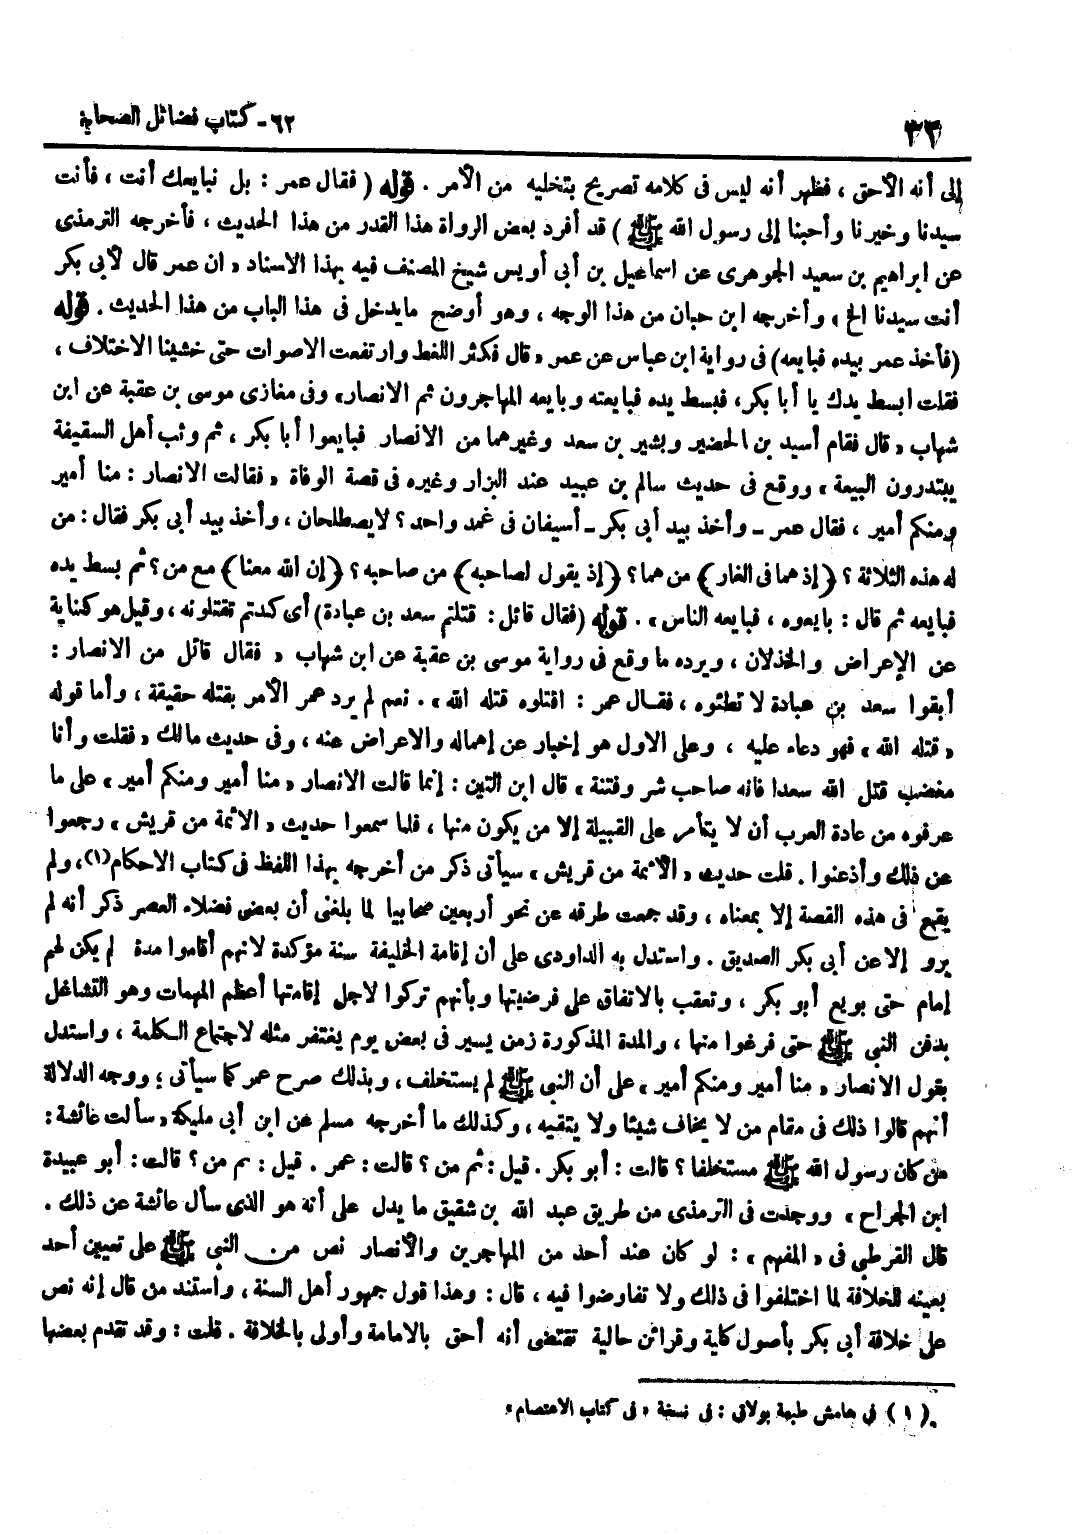 ٣٢
٦٢ - كتاب فضائل الصحابة
إلى أنه الأحق ، فظهر أنه ليس فى كلامه تصريح بتخليه من الأمر . قوله ( فقال عمر : بل نبايعك أنت ، فأنت
سيدنا وخيرنا وأحبنا إلى رسول الله ﷺ ) قد أفرد بعض الرواة هذا القدر من هذا الحديث ، فأخرجه الترمذى
عن ابراهيم بن سعيد الجوهرى عن اسماعيل بن أبى أويس شيخ المصنف فيه بهذا الاسناد « ان عمر قال لأبى بكر
أنت سيدنا الخ » وأخرجه ابن حبان من هذا الوجه ، وهو أوضح مايدخل فى هذا الباب من هذا الحديث . قوله
(فأخذ عمر بيده فبايعه) فى رواية ابن عباس عن عمر « قال فكثر اللغط وارتفعت الاصوات حتى خشينا الاختلاف ،
فقلت ابسط يدك يا أبا بكر، فبسط يده فبايعته وبايعه المهاجرون ثم الانصار» وفى مغازى موسى بن عقبة عن ابن
شهاب « قال فقام أسيد بن الحضير وبشير بن سعد وغيرهما من الانصار فبايعوا أبا بكر ، ثم وثب أهل السقيفة
يبتدرون البيعة » ووقع فى حديث سالم بن عبيد عند البزار وغيره فى قصة الوفاة « فقالت الانصار : منا أمير
ومنكم أمير ، فقال عمر ــ وأخذ بيد أبى بكر ــ أسيفان فى غمد واحد ؟ لايصطلحان ، وأخذ بيد أبى بكر فقال : من
له هذه الثلاثة ؟ ﴿إذ هما فى الغار﴾ من هما ؟ ﴿إذ يقول لصاحبه﴾ من صاحبه ؟ ﴿إن الله معنا﴾ مع من ؟ ثم بسط يده
فبايعه ثم قال : بايعوه ، فبايعه الناس » . قوله (فقال قائل : قتلتم سعد بن عبادة) أى كدتم تقتلونه ، وقيل هو كناية
عن الإعراض والخذلان ، ويرده ما وقع فى رواية موسى بن عقبة عن ابن شهاب « فقال قائل من الانصار :
أبقوا سعد بن عبادة لا تطئوه ، فقال عمر : اقتلوه قتله الله » . نعم لم يرد عمر الأمر بقتله حقيقة ، وأما قوله
« قتله الله » فهو دعاء عليه ، وعلى الاول هو إخبار عن إهماله والاعراض عنه ، وفى حديث مالك « فقلت وأنا
مغضب قتل الله سعدا فانه صاحب شر وفتنة » قال ابن التين : إنما قالت الانصار « منا أمير ومنكم أمير » على ما
عرفوه من عادة العرب أن لا يتأمر على القبيلة إلا من يكون منها ، فلما سمعوا حديث « الائمة من قريش » رجعوا
عن ذلك وأذعنوا . قلت حديث « الأئمة من قريش » سيأتى ذكر من أخرجه بهذا اللفظ فى كتاب الاحكام(١)، ولم
يقع فى هذه القصة إلا بمعناه ، وقد جمعت طرقه عن نحو أربعين صحابيا لما بلغنى أن بعض فضلاء العصر ذكر أنه لم
يرو إلا عن أبى بكر الصديق . واستدل به الداودى على أن إقامة الخليفة سنة مؤكدة لانهم أقاموا مدة لم يكن لهم
إمام حتى بويع أبو بكر ، وتعقب بالاتفاق على فرضيتها وبأنهم تركوا لاجل إقامتها أعظم المهمات وهو التشاغل
بدفن النبى ﷺ حتى فرغوا منها ، والمدة المذكورة زمن يسير فى بعض يوم يغتفر مثله لاجتماع الكلمة ، واستدل
بقول الانصار « منا أمير ومنكم أمير » على أن النبى ﷺ لم يستخلف ، وبذلك صرح عمر كما سيأتى ؛ ووجه الدلالة
أنهم قالوا ذلك فى مقام من لا يخاف شيئا ولا يتقيه ، وكذلك ما أخرجه مسلم عن ابن أبى مليكة « سألت عائشة :
من كان رسول الله ﷺ مستخلفا ؟ قالت : أبو بكر . قيل : ثم من ؟ قالت : عمر . قيل : ثم من ؟ قالت : أبو عبيدة
ابن الجراح » ووجدت فى الترمذى من طريق عبد الله بن شقيق ما يدل على أنه هو الذى سأل عائشة عن ذلك .
قال القرطبى فى « المفهم » : لو كان عند أحد من المهاجرين والأنصار نص من النبى ﷺ على تعيين أحد
بعينه للخلافة لما اختلفوا فى ذلك ولا تفاوضوا فيه ، قال : وهذا قول جمهور أهل السنة ، واستند من قال إنه نص
على خلافة أبى بكر بأصول كلية وقرائن حالية تقتضى أنه أحق بالامامة وأولى بالخلافة . قلت : وقد تقدم بعضها
( ١ ) فى هامش طبعة بولاق : فى نسخة « فى كتاب الاعتصام »